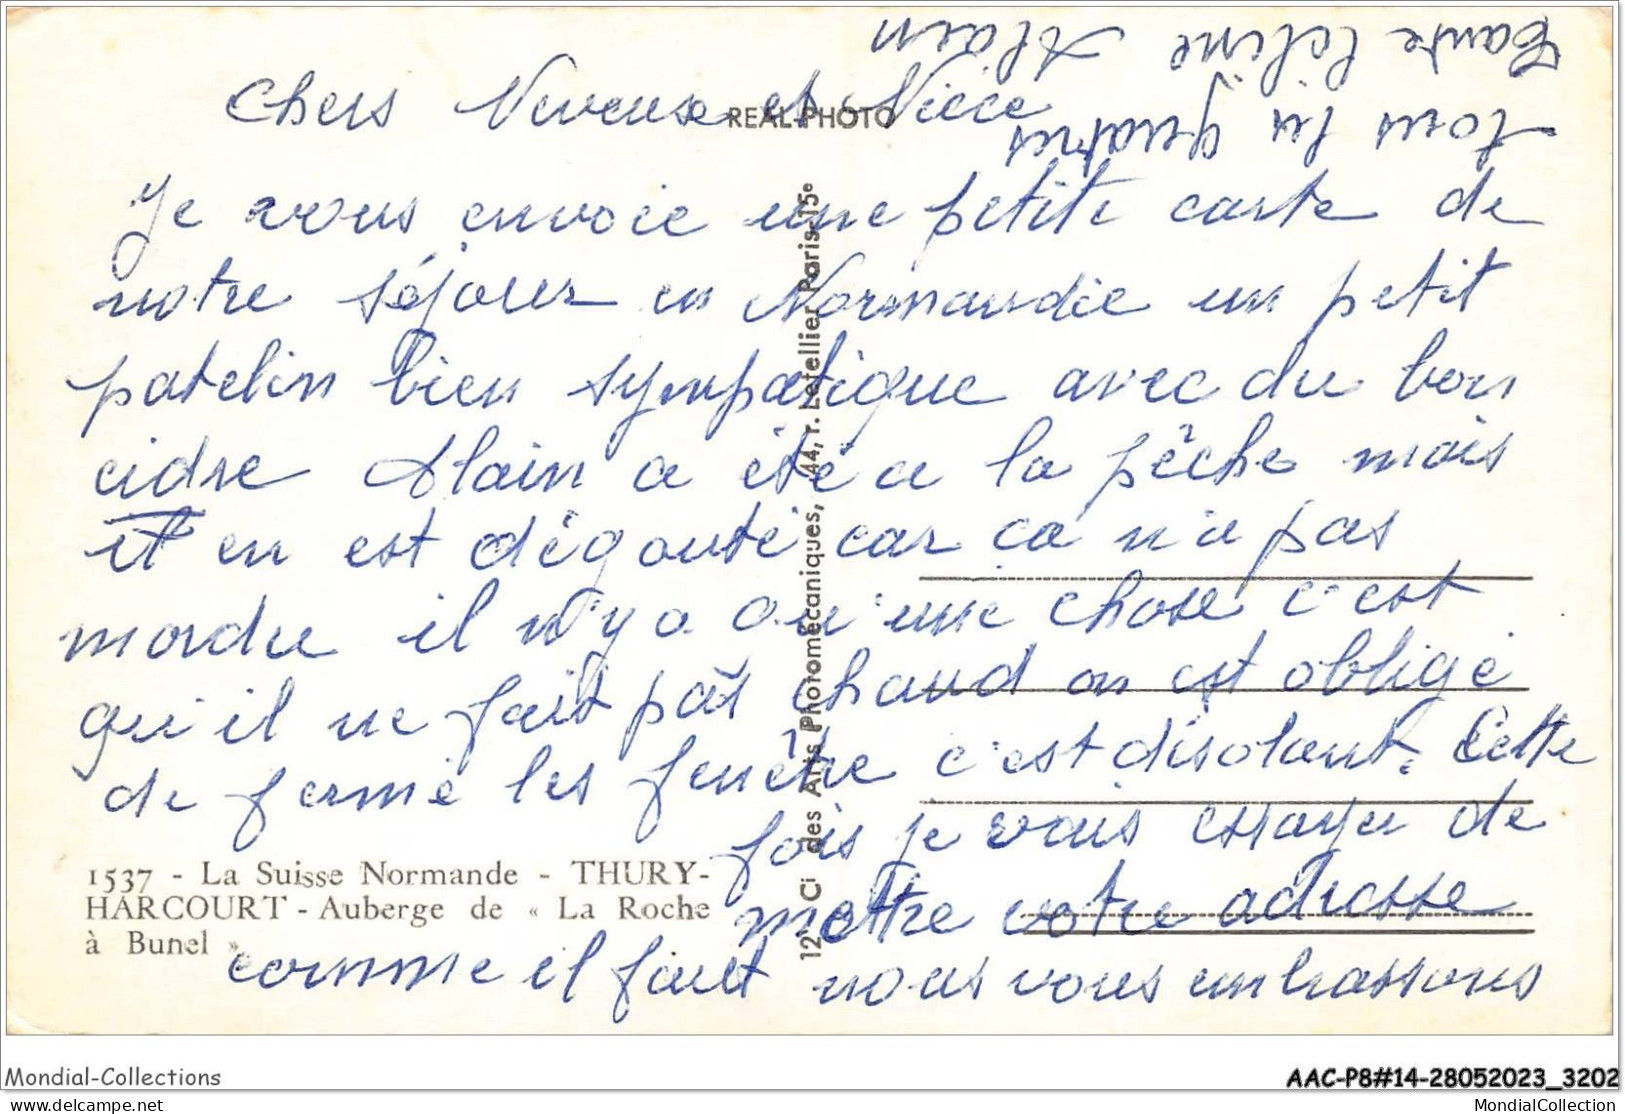 Chers Neveuse et Nièce
REAL-PHOTO
Je vous envoie une petite carte de
notre séjour en Normandie un petit
patelin bien sympatique avec du bon
cidre Alain a été a la pêche mais
il en est dégouté car ca n'a pas
mordu il n'y a qu'une chose c'est
qu'il ne fait pas chaud on est obligé
de fermé les fenêtre c'est disolant. Cette
fois je vais essayer de
mettre votre adresse
comme il faut nous vous embrassons
tous les quatres
Tante Céline Alain
1537 - La Suisse Normande - THURY-
HARCOURT - Auberge de « La Roche
à Bunel »
12 - Cⁱ des Arts Photomécaniques, 44, r. Letellier, Paris-15ᵉ
Mondial-Collections
AAC-P8#14-28052023_3202
delcampe.net
MondialCollection